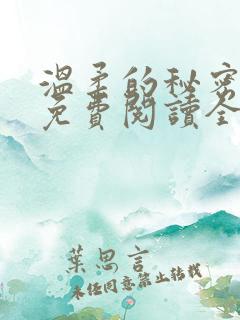 溫柔的秘密
免費閱讀全
葉思言
未經同意禁止轉載